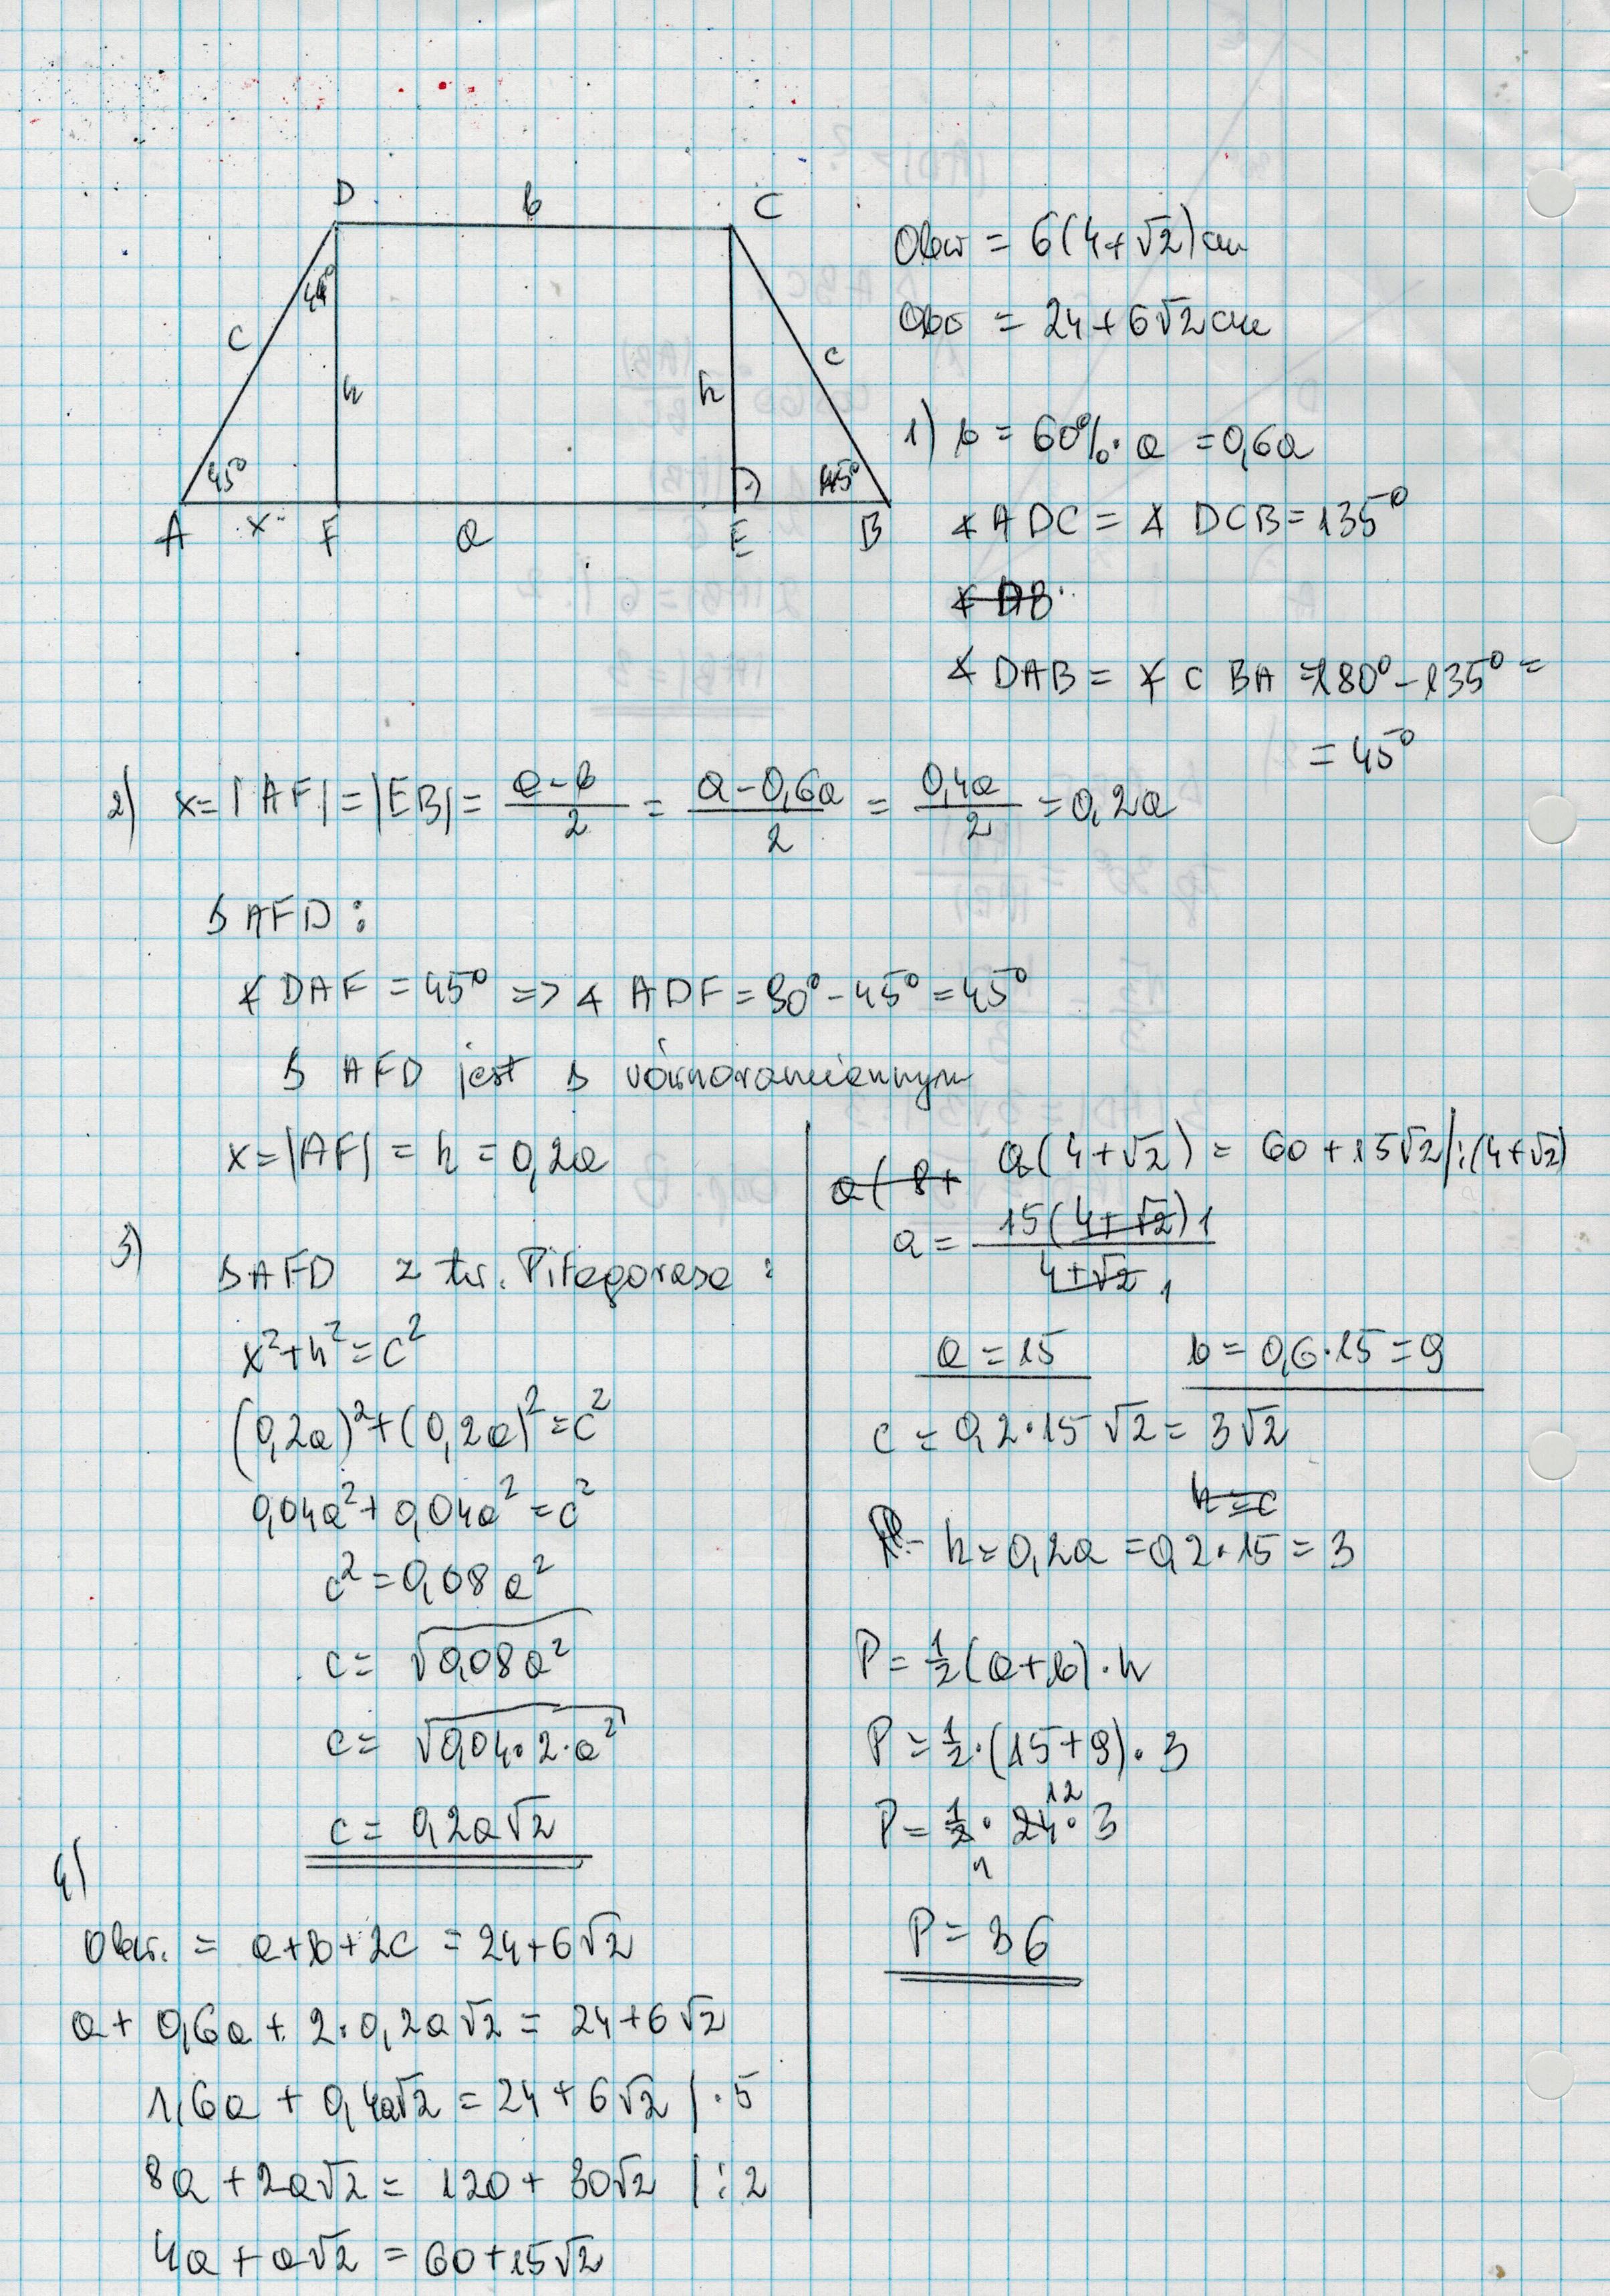 D b C
45°
c h h c
45° 45°
A x F a E B
Obw = 6(4+√2)cm
Obw = 24+6√2cm
1) b = 60%·a = 0,6a
∡ ADC = ∡ DCB = 135°
∡ DAB = ∡ CBA = 180° - 135° =
= 45°
2) x = |AF| = |EB| = (a-b)/2 = (a-0,6a)/2 = 0,4a/2 = 0,2a
Δ AFD :
∡ DAF = 45° => ∡ ADF = 90° - 45° = 45°
Δ AFD jest Δ równoramiennym
x = |AF| = h = 0,2a
3)
Δ AFD z tw. Pitagorasa :
x² + h² = c²
(0,2a)² + (0,2a)² = c²
0,04a² + 0,04a² = c²
c² = 0,08a²
c = √0,08a²
c = √0,04·2·a²
c = 0,2a√2
4)
Obw. = a+b+2c = 24+6√2
a + 0,6a + 2·0,2a√2 = 24+6√2
1,6a + 0,4a√2 = 24+6√2 /·5
8a + 2a√2 = 120 + 30√2 /:2
4a + a√2 = 60+15√2
a(8+ a(4+√2) = 60+15√2 /:(4+√2)
a = 15(4+√2) 1 / 4+√2 1
a = 15 b = 0,6·15 = 9
c = 0,2·15√2 = 3√2
h = c
h = 0,2a = 0,2·15 = 3
P = ½(a+b)·h
P = ½·(15+9)·3
12
P = ½·24·3
1
P = 36